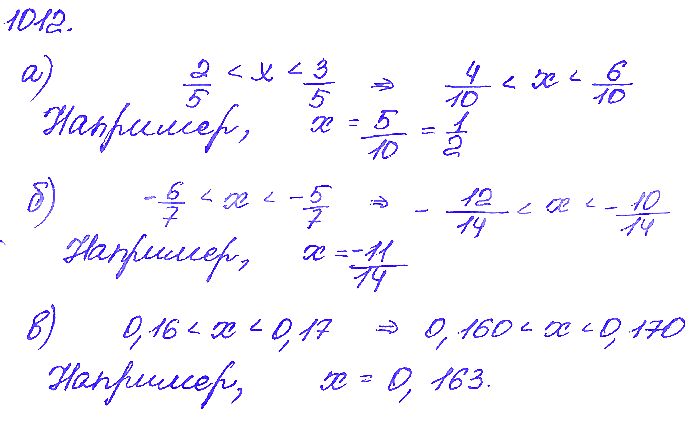 1012.
а) 2/5 < x < 3/5 ⇒ 4/10 < x < 6/10
Например, x = 5/10 = 1/2
б) -6/7 < x < -5/7 ⇒ - 12/14 < x < - 10/14
Например, x = -11/14
в) 0,16 < x < 0,17 ⇒ 0,160 < x < 0,170
Например, x = 0, 163.